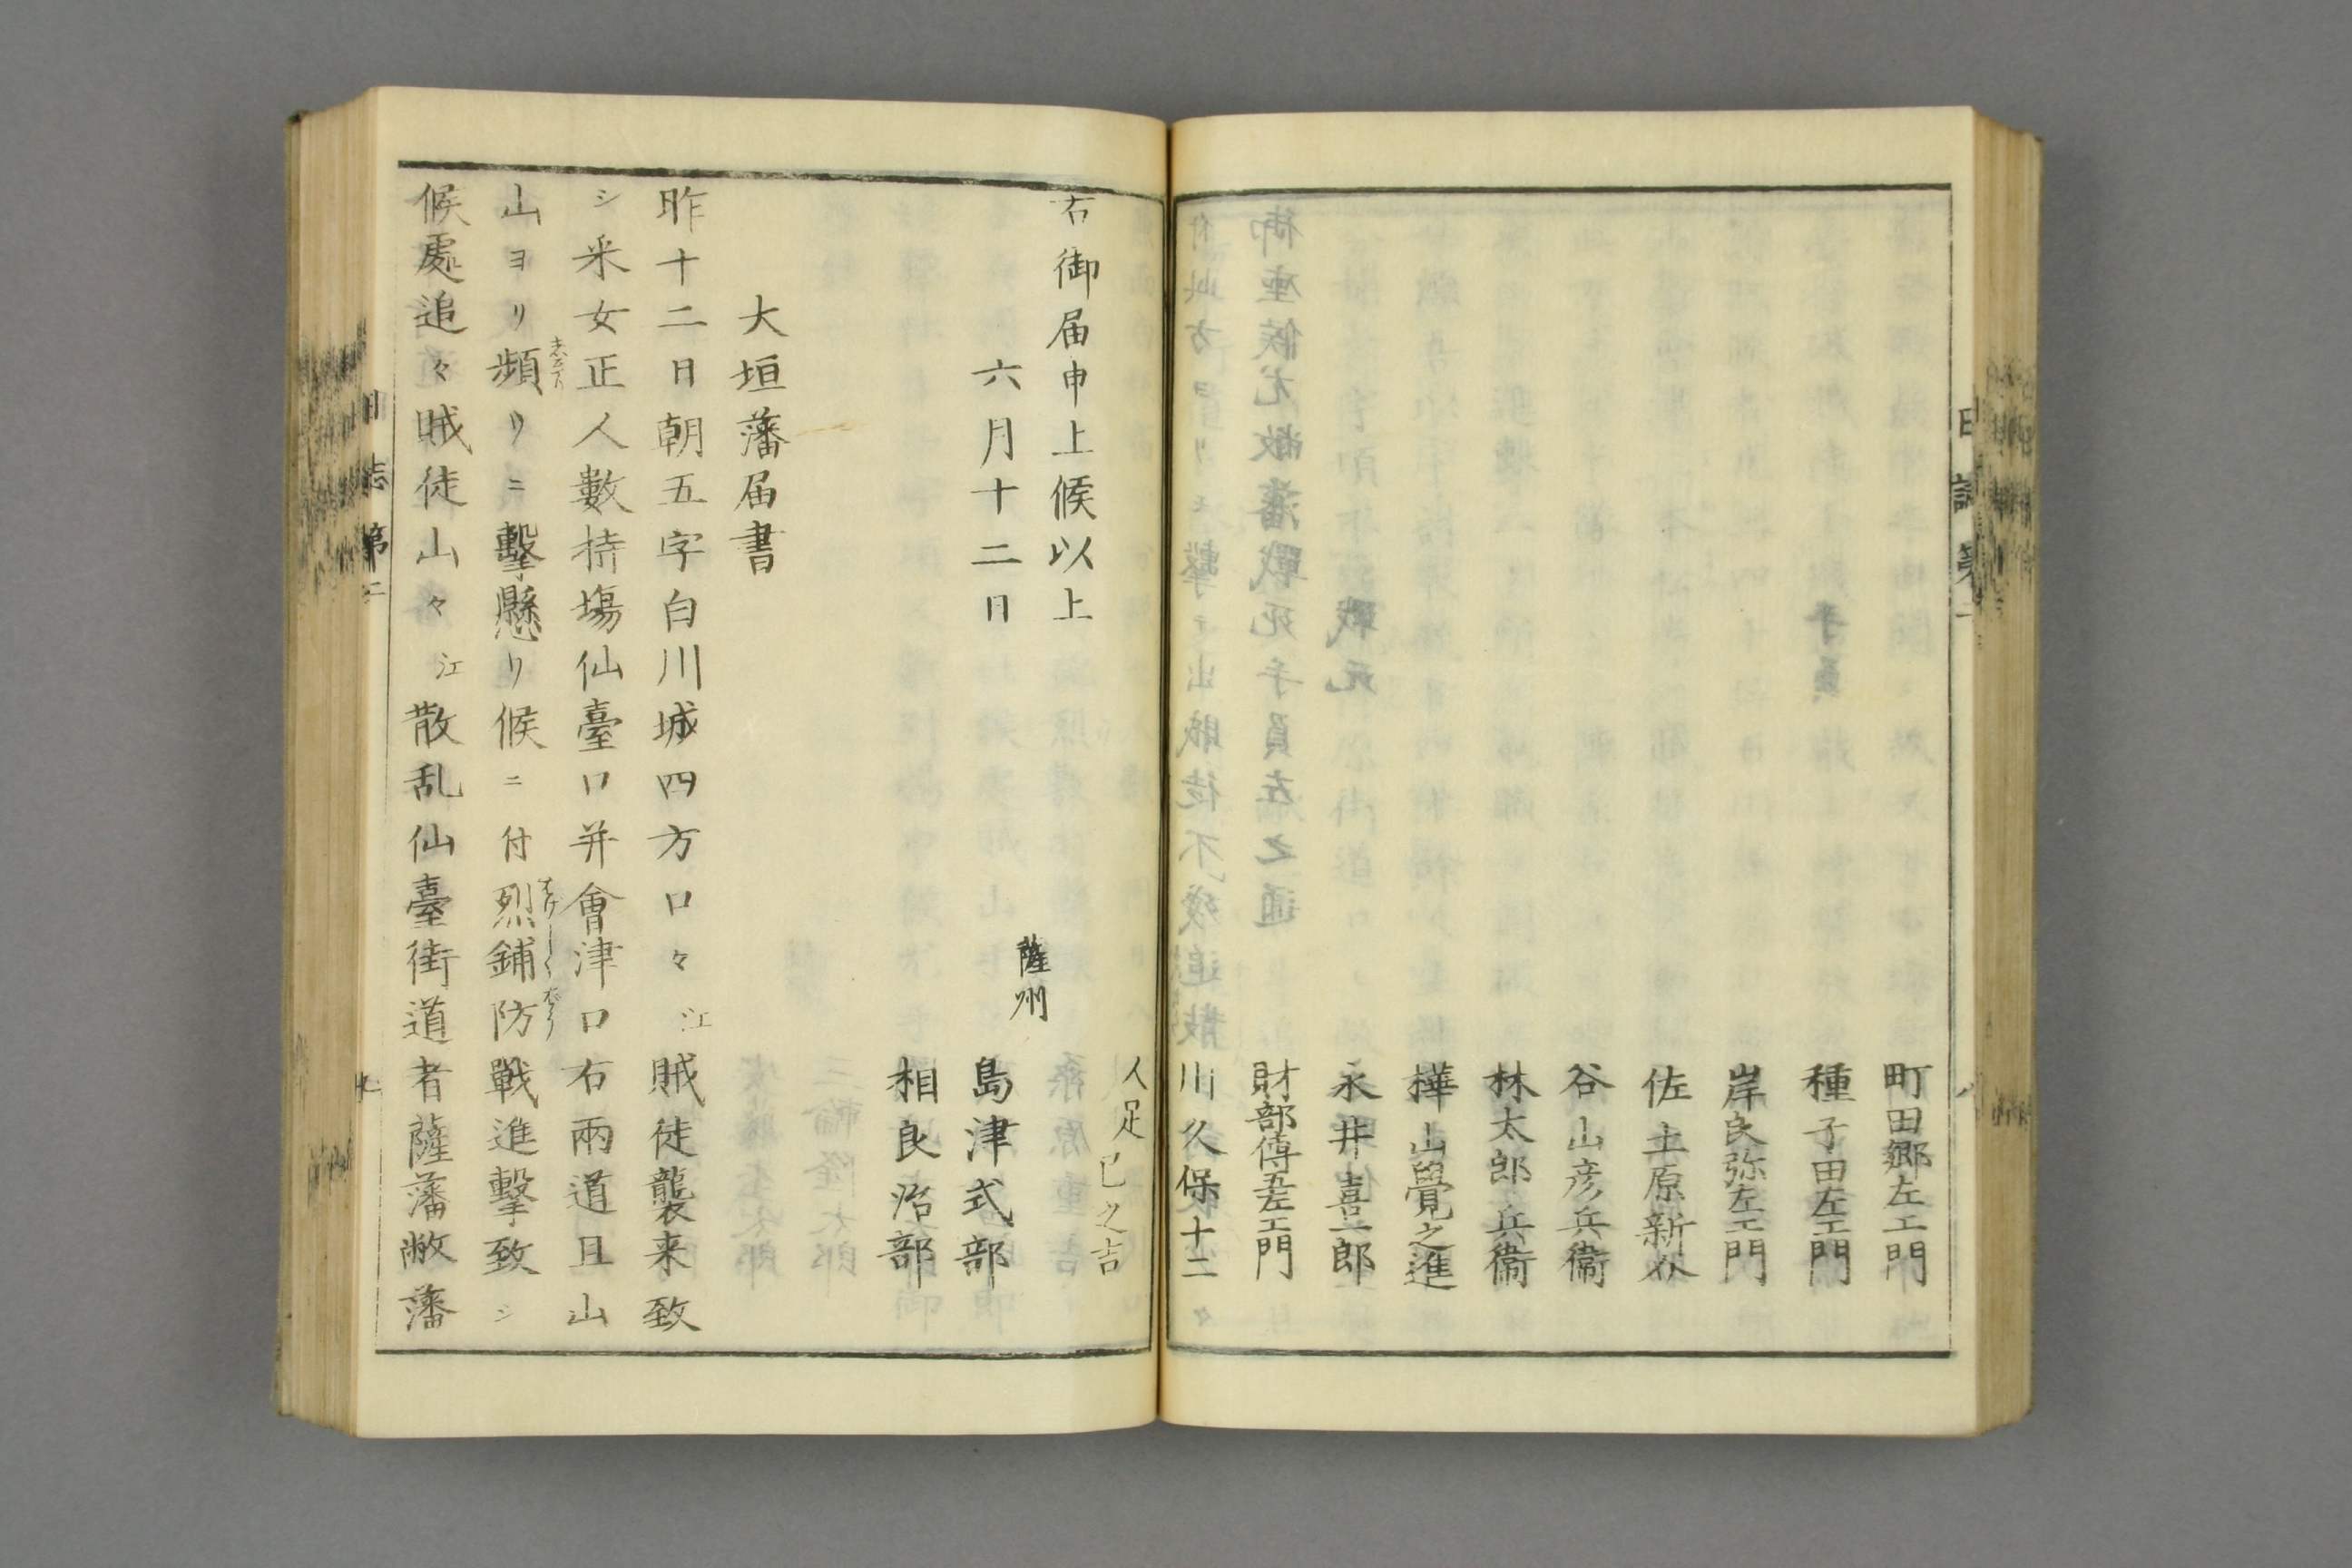 町田郷左エ門
種子田左エ門
岸良弥左エ門
佐土原新介
谷山彦兵衞
林太郎兵衞
樺山覺之進
永井喜二郎
財部傳五左エ門
川久保十二
日誌第二
八
人足已之吉
右御届申上候以上
薩州
六月十二日
島津式部
相良治部
大垣藩届書
昨十二日朝五字白川城四方口々江賊徒襲来致
シ釆女正人數持場仙臺口并會津口右兩道且山
山ヨリ頻リニ擊懸リ候ニ付烈鋪防戰進擊致シ
候處追々賊徒山々江散乱仙臺街道者薩藩敝藩
日誌第二
九